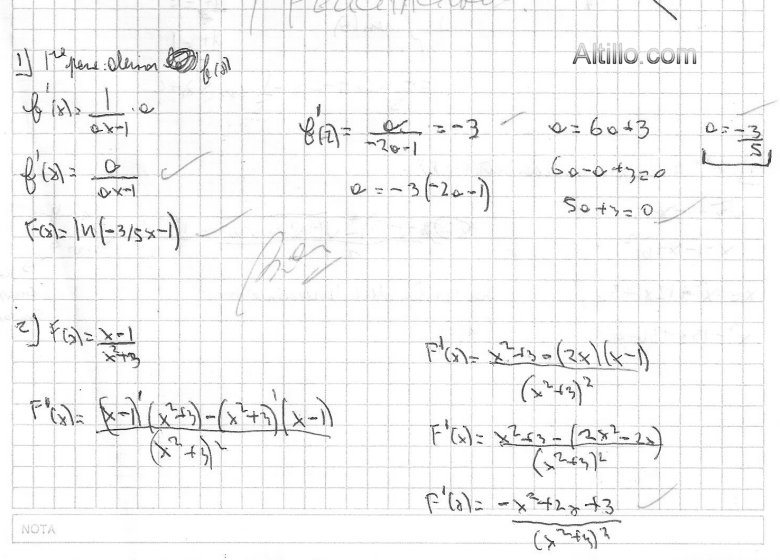 Altillo.com
1) 1re paso: derivar f(x)
f'(x) = 1/(ax-1) · a
f'(x) = a/(ax-1)
F(x) = ln(-3/5x-1)
f'(-2) = a/(-2a-1) = -3
a = -3(-2a-1)
a = 6a+3
6a-a+3=0
5a+3=0
a = -3/5
2) F(x) = (x-1)/(x²+3)
F'(x) = ((x-1)'(x²+3)-(x²+3)'(x-1))/(x²+3)²
F'(x) = (x²+3-(2x)(x-1))/(x²+3)²
F'(x) = (x²+3-(2x²-2x))/(x²+3)²
F'(x) = (-x²+2x+3)/(x²+3)²
NOTA